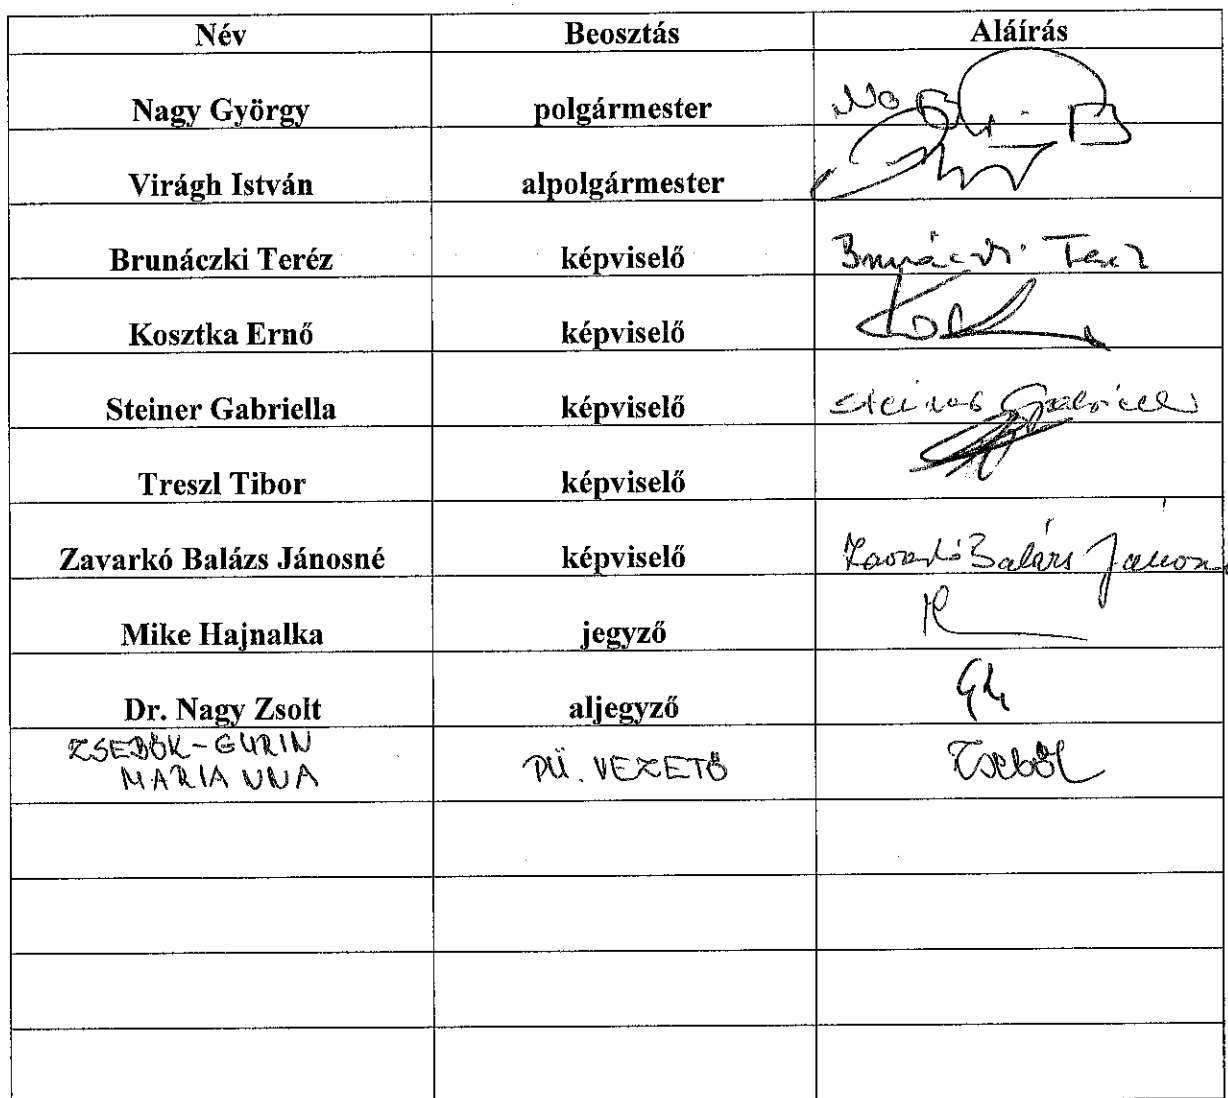 Név Beosztás Aláírás
Nagy György polgármester
Virágh István alpolgármester
Brunáczki Teréz képviselő Brunáczki Teréz
Kosztka Ernő képviselő
Steiner Gabriella képviselő Steiner Gabriella
Treszl Tibor képviselő
Zavarkó Balázs Jánosné képviselő Zavarkó Balázs Jánosné
Mike Hajnalka jegyző
Dr. Nagy Zsolt aljegyző
ZSEBŐK-GURIN
MARIANNA PÜ. VEZETŐ Zsebők